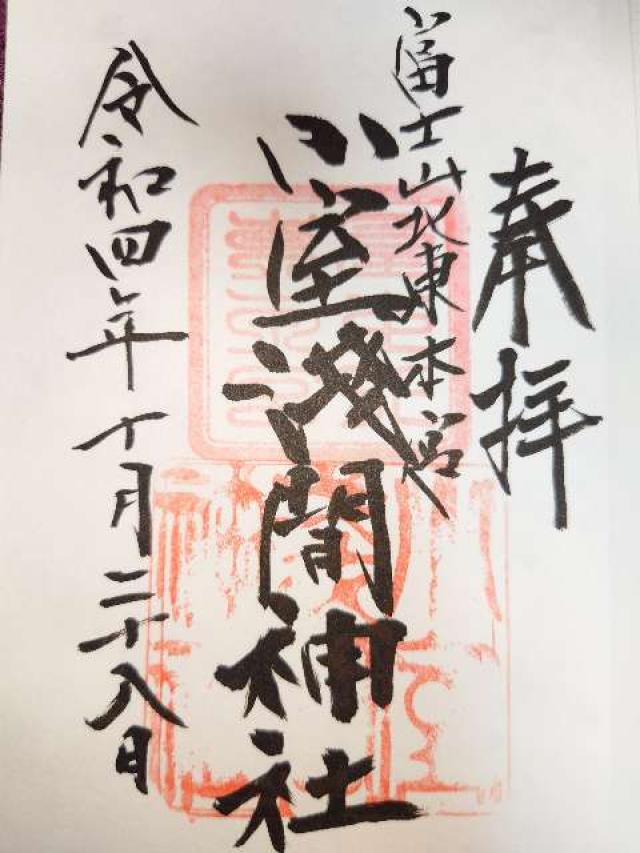 奉拝
富士山北東本宮
小室浅間神社
令和四年十月二十八日